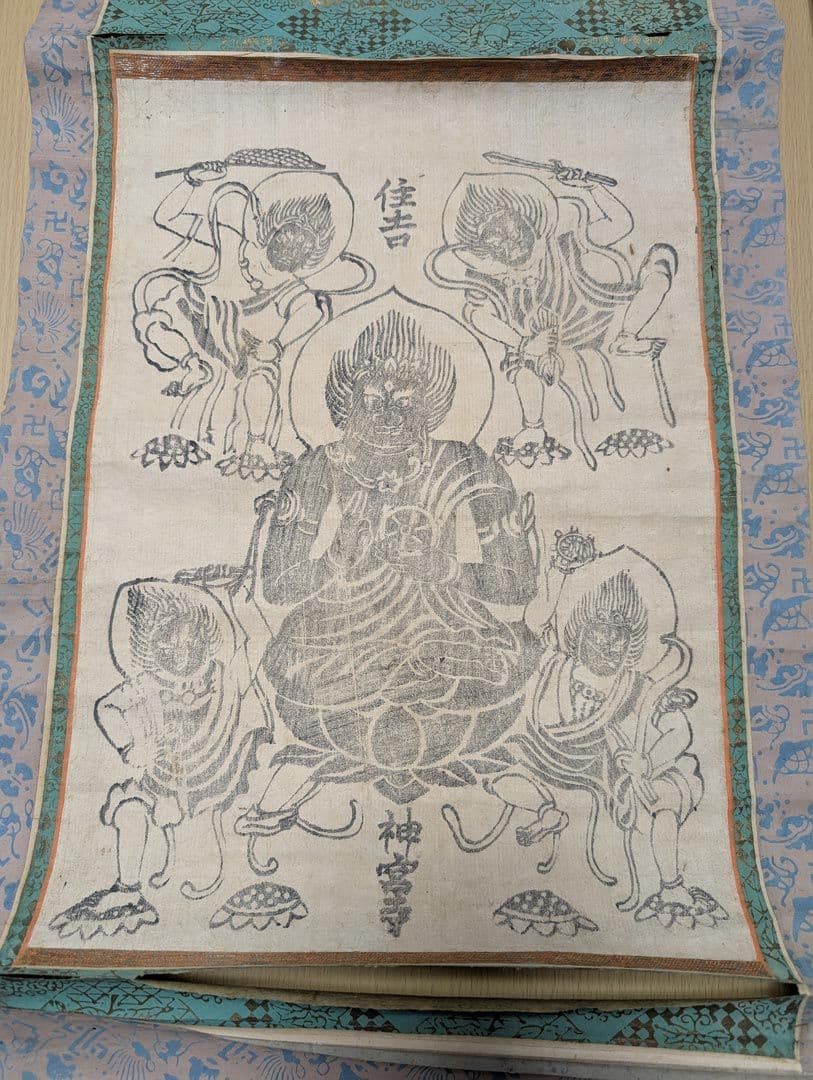 住吉
神宮寺